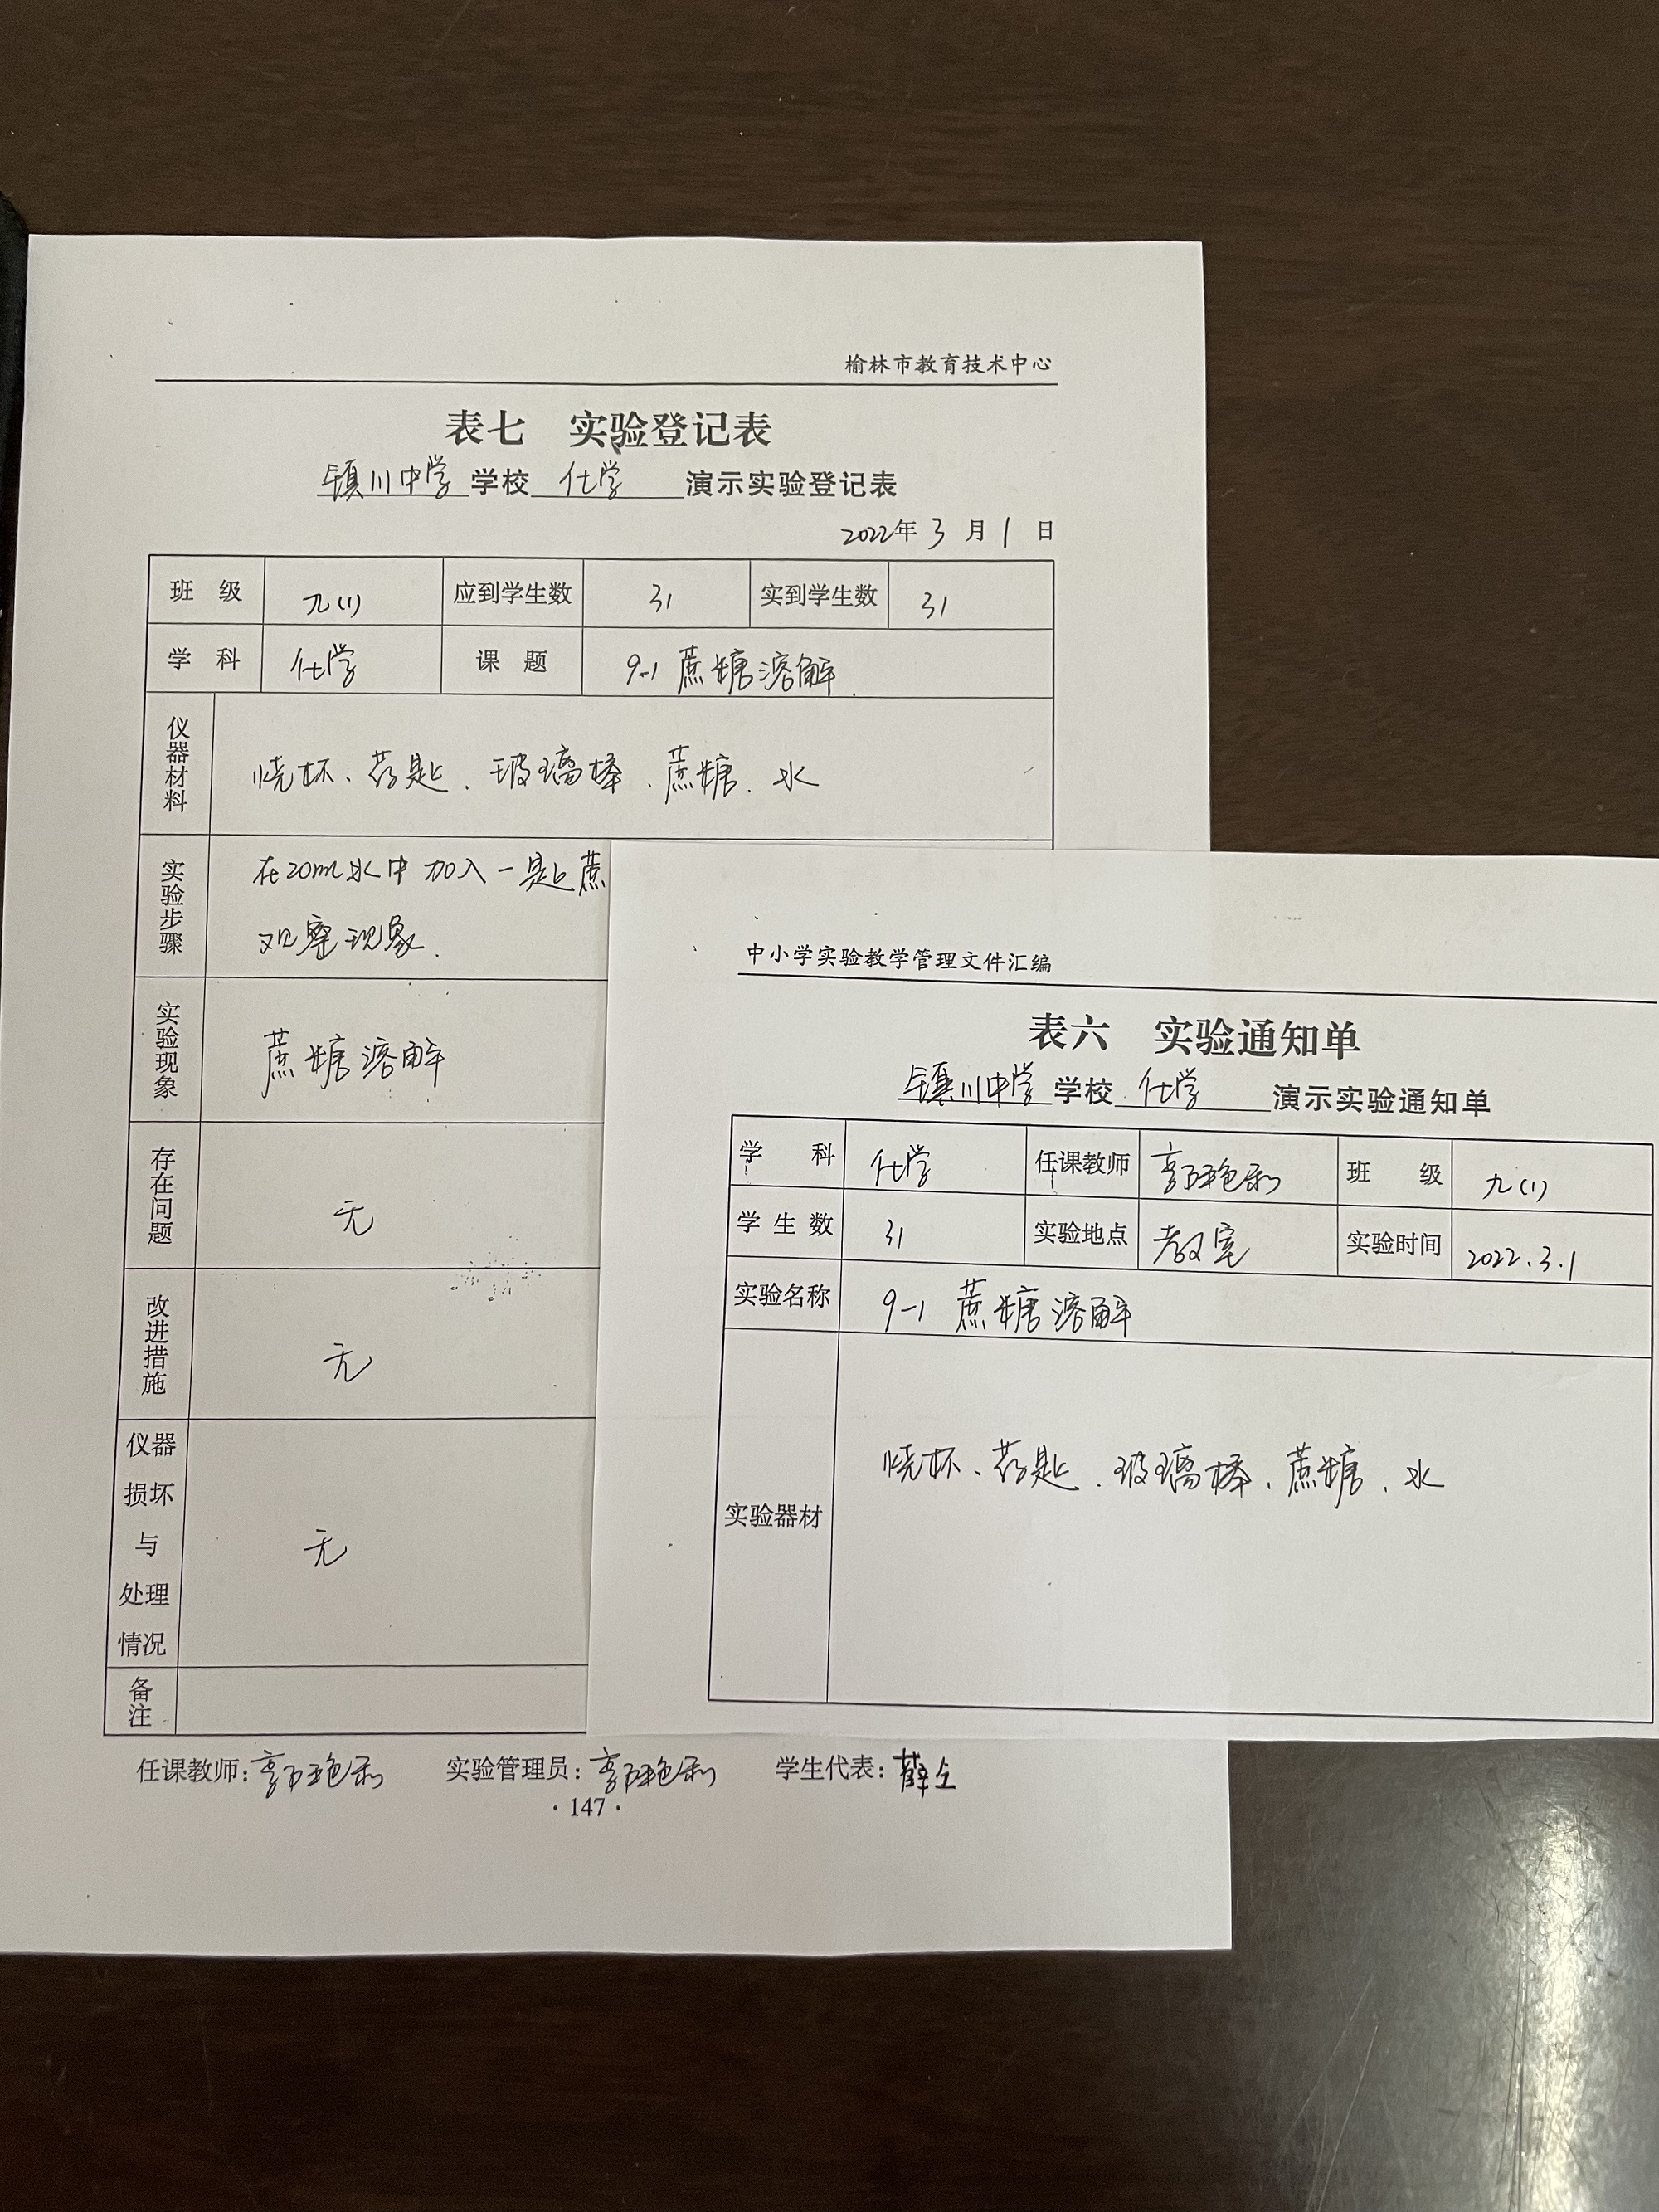 榆林市教育技术中心
表七 实验登记表
镇川中学学校 化学 演示实验登记表
2022年 3 月 1 日
班 级 九(1) 应到学生数 31 实到学生数 31
学 科 化学 课 题 9-1 蔗糖溶解
仪器材料 烧杯、药匙、玻璃棒、蔗糖、水
实验步骤 在20ml水中加入一匙蔗
观察现象.
实验现象 蔗糖溶解
存在问题 无
改进措施 无
仪器
损坏
与
处理
情况
无
备注
任课教师: 实验管理员: 学生代表:薛
·147·
中小学实验教学管理文件汇编
表六 实验通知单
镇川中学学校 化学 演示实验通知单
学 科 化学 任课教师 班 级 九(1)
学生数 31 实验地点 教室 实验时间 2022.3.1
实验名称 9-1 蔗糖溶解
实验器材 烧杯、药匙、玻璃棒、蔗糖、水